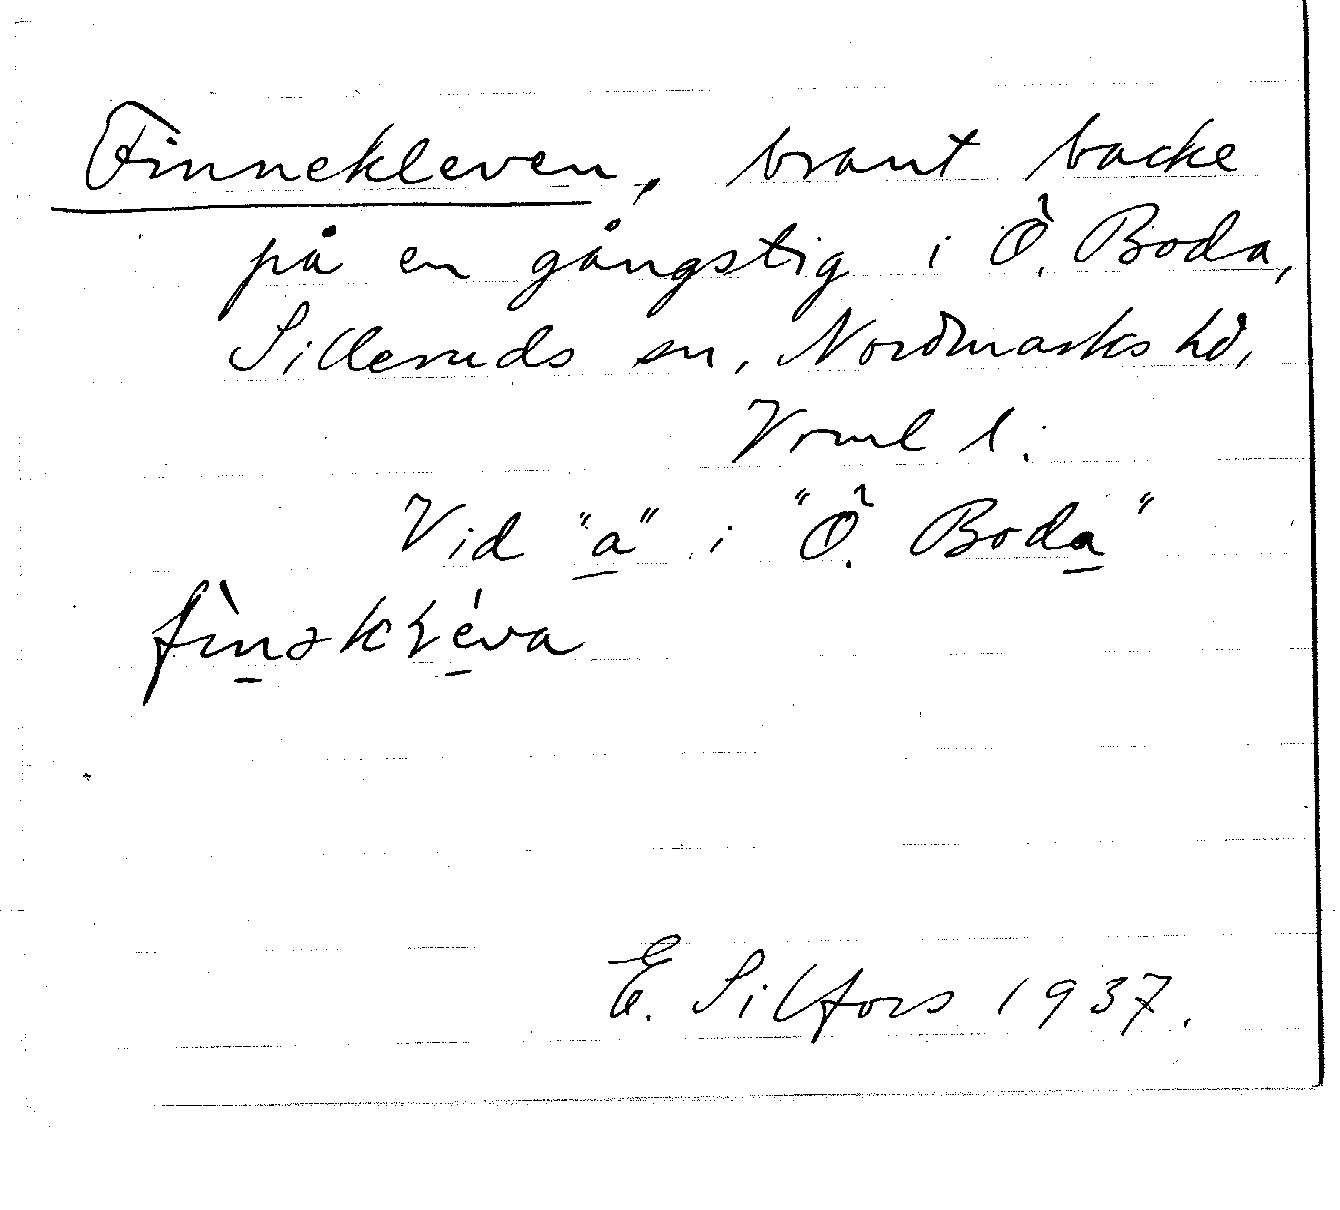 Finnekleven, brant backe
på en gångstig i Ö. Boda,
Silleruds sn, Nordmarks hd,
Vrml l.
Vid "a" i "Ö. Boda"
E. Silfors 1937.